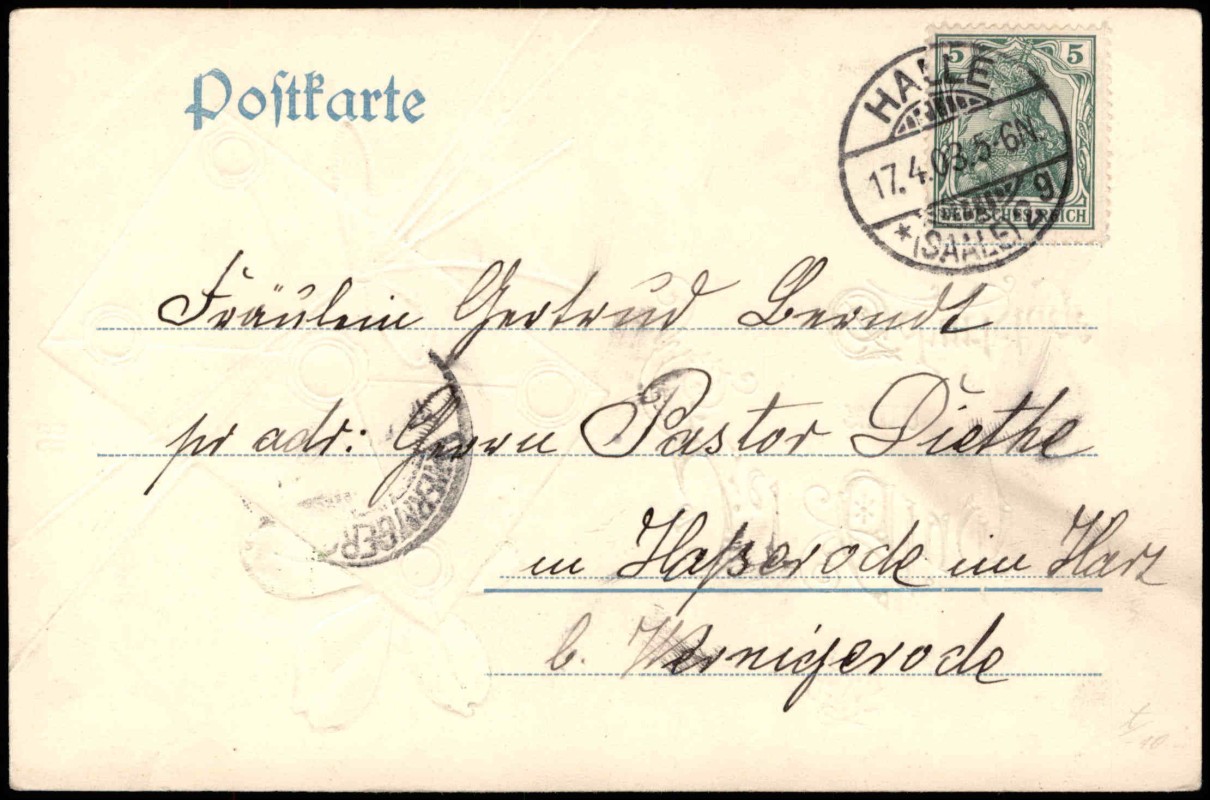 Postkarte
5 5
DEUTSCHES REICH
HALLE
17.4.03.5-6N.
* (SAALE) 2 g
Fräulein Gertrud Berndt
pr adr: Herrn Pastor Diethe
in Haßerode im Harz
b. Wernigerode
WERNIGER